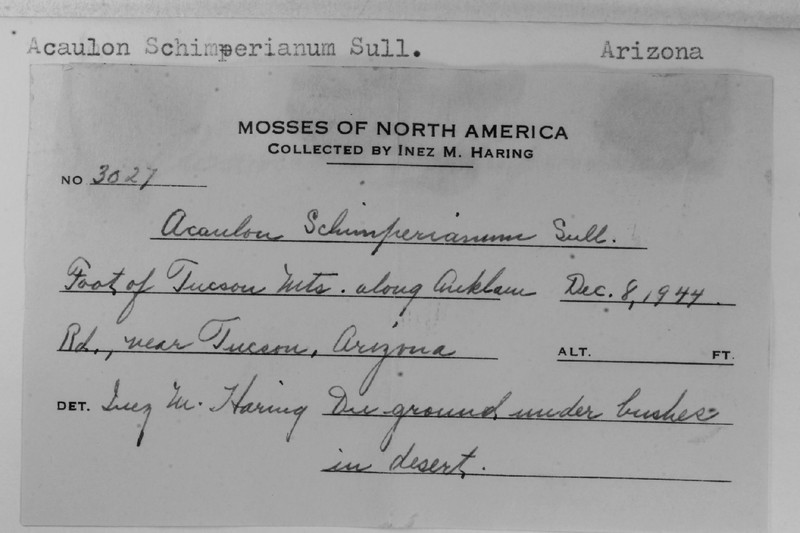 Acaulon Schimperianum Sull. Arizona
MOSSES OF NORTH AMERICA
COLLECTED BY INEZ M. HARING
NO 3027
Acaulon Schimperianum Sull.
Foot of Tucson Mts. along Anklam Dec. 8, 1944.
Rd., near Tucson, Arizona ALT. FT.
DET. Inez M. Haring On ground under bushes
in desert.